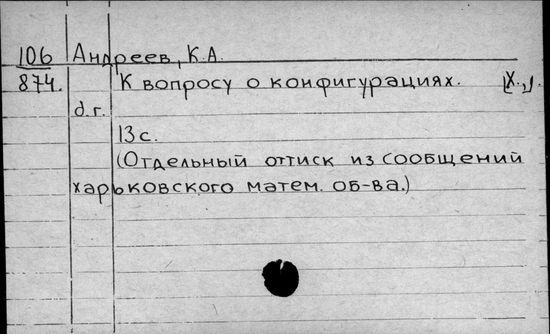 106 Андреев, К.А.
874. К вопросу о конфигурациях. [Х.,].
д.г.
13 с.
(Отдельный оттиск из сообщений
харьковского матем. об-ва.)